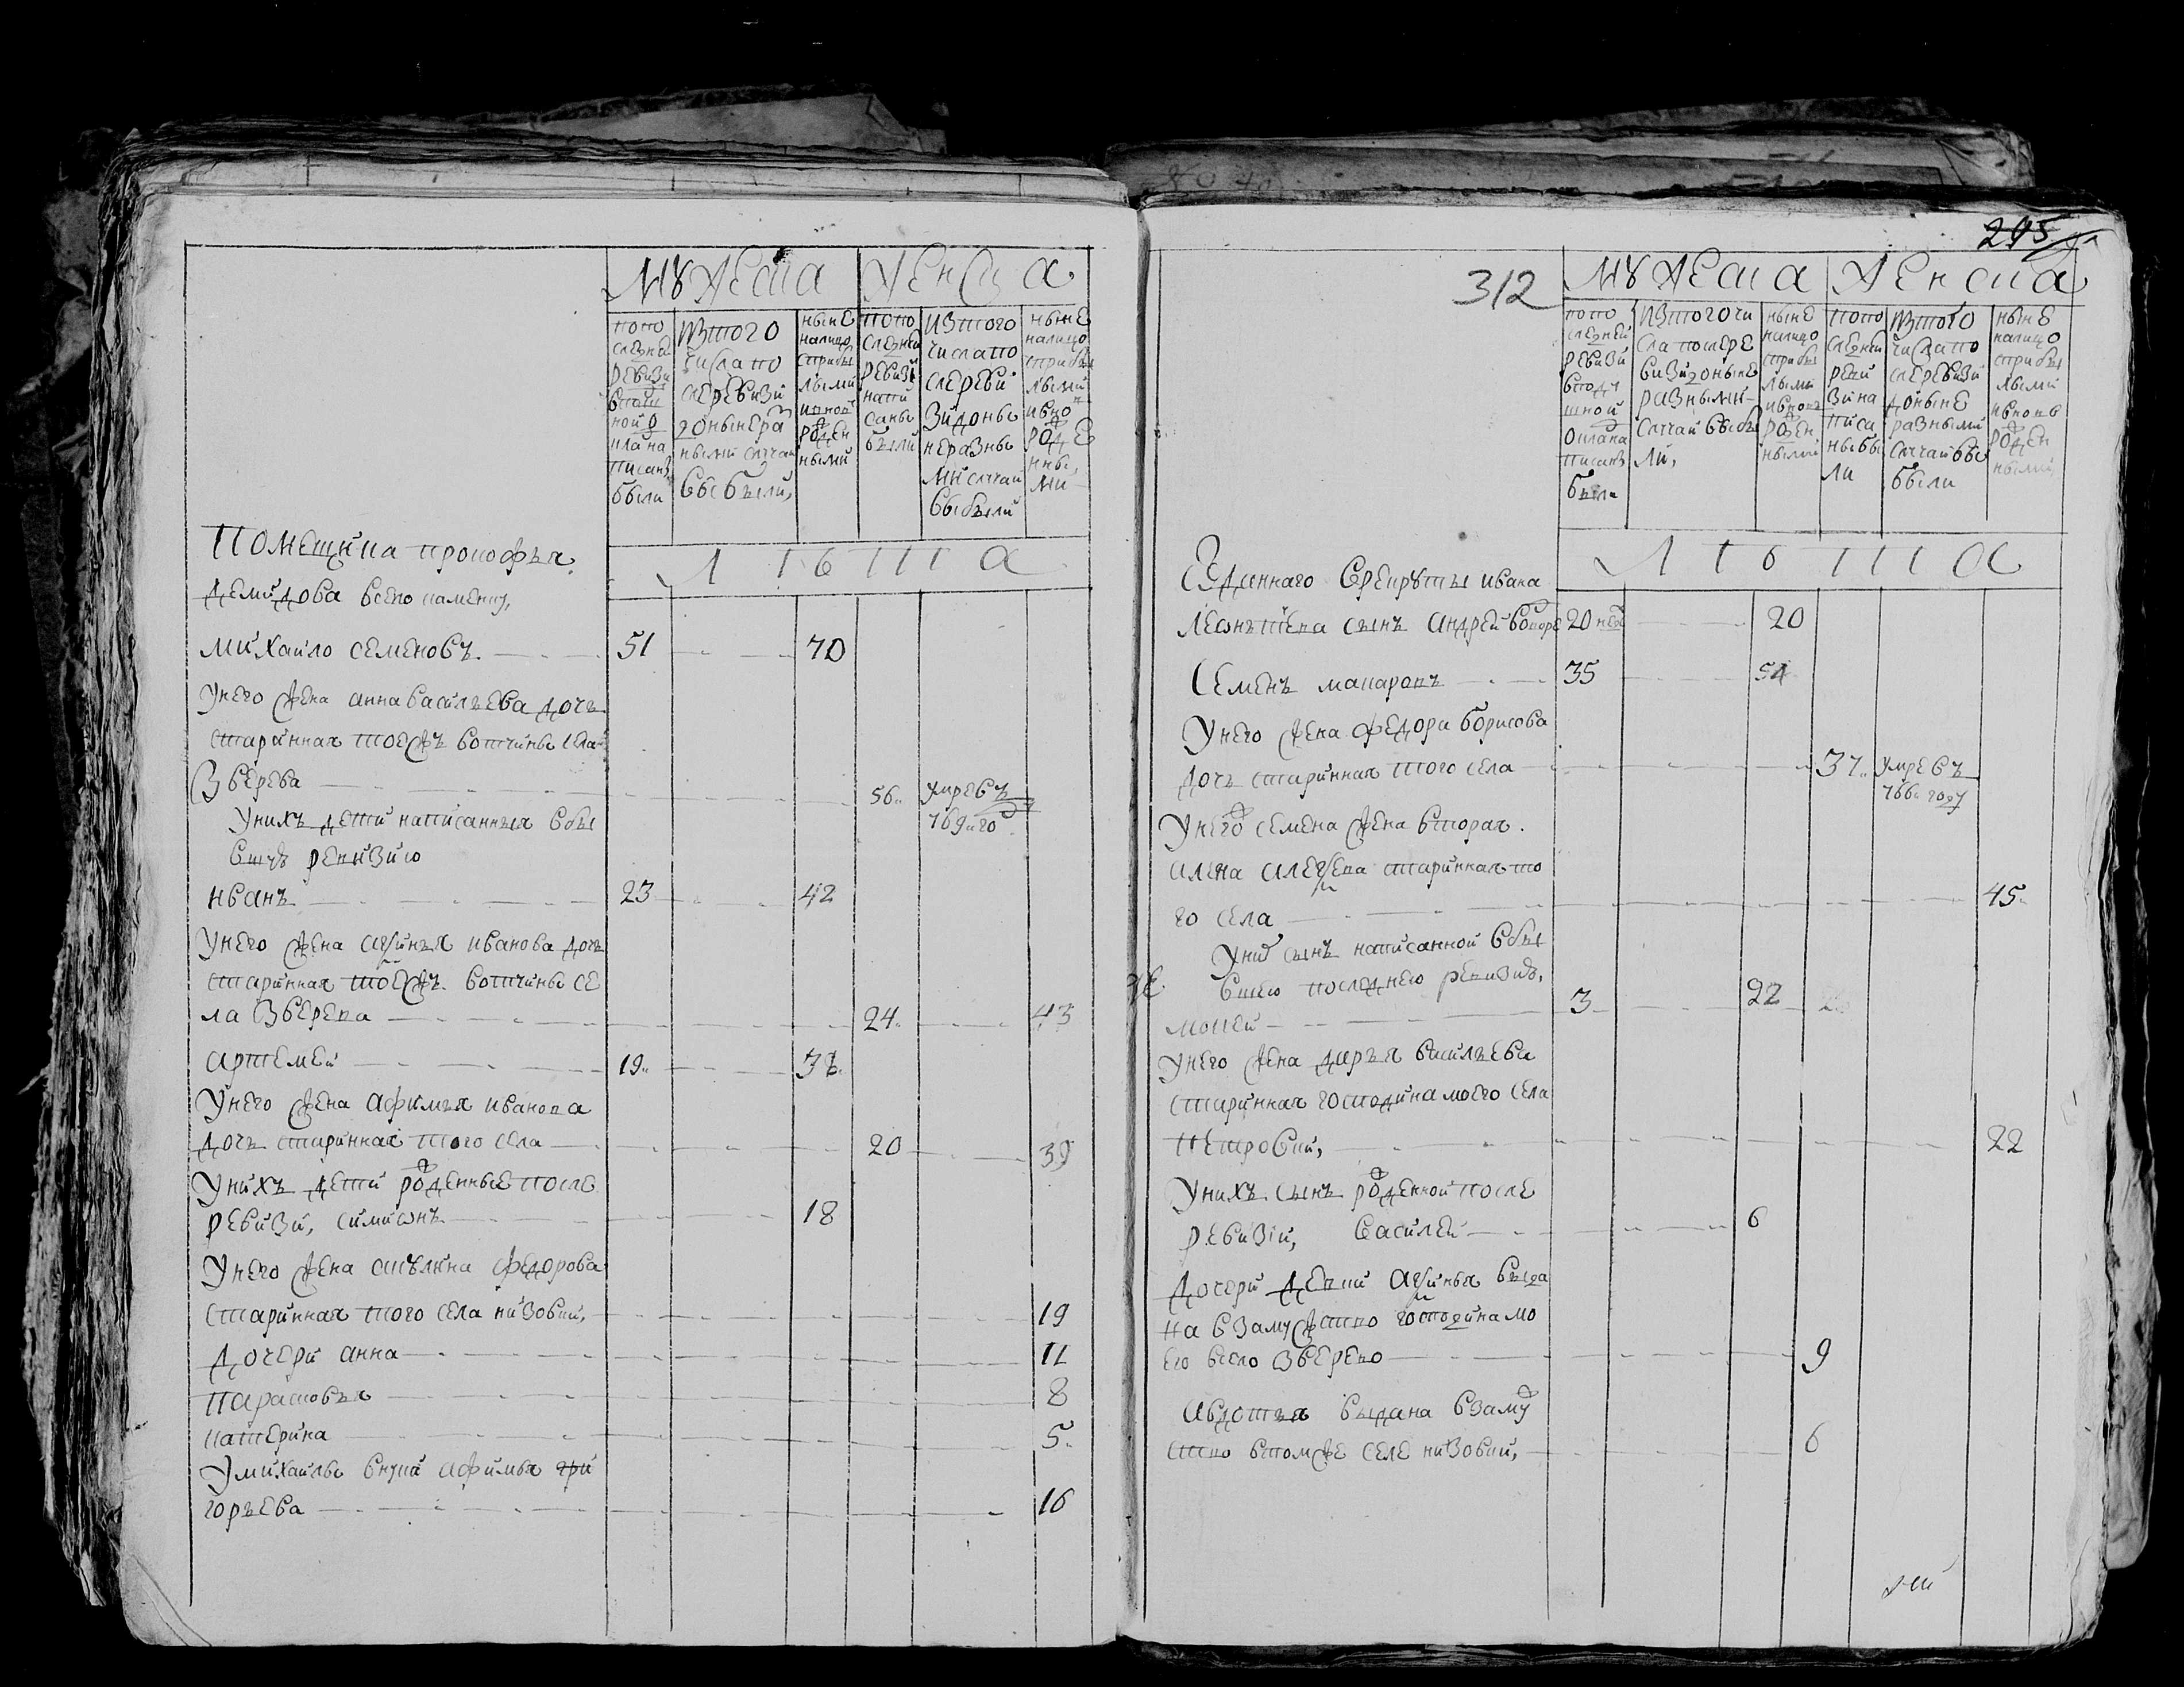 мужеска
женска
попо
следней
ревизи
нои
писаны
были
изтого
числапо
слеревизи
доныне ра
ными случаи
выбыли,
ныне
налицо
сприбы
лыми
роден
ными
попо
следней
ревизи
напи
саны
были
изтого
числапо
слереви
зидоны
неразны
мислучаи
выбыли
ныне
налицо
сприбы
лыми
вно
роде
нны,
ми
лѣта
помещика прокофья
демидова
михайло семеновъ
51
70
унего жена анна васильева дочь
старинная тоежъ вотчины села
зверева
56
умре въ
769 го
унихъ дети написанныя вбы
вшую ревизию
иванъ
23
42
унего жена аксинья иванова дочь
старинная тоежъ вотчины се
ла зверева
24
43
артемей
19
38
унего жена афимья иванова
дочь старинная того села
20
39
унихъ дети рожденные после
ревизи, симионъ
18
унего жена акулина федорова
старинная того села низовки,
19
дочери анна
11
парасковья
8
катерина
5
умихайлы внука афимья гри
горьева
16
295
312
мужеска
женска
попо
следней
ревизи
писаны
были
изтогочи
сла послере
визидоныне
разными
случаи выбы
ли,
ныне
налицо
сприбы
лыми
вновь
рожен
ными
попо
следней
реви
зина
писа
ныбы
ли
изтого
числапо
слеревизи
доныне
разными
случаи вы
были
ныне
налицо
сприбы
лыми
ивновь
рожен
ными,
лѣта
отданнаго врекруты ивана
леонтьева сынъ андрей
20
20
семенъ макаровъ
35
54
унего жена федора борисова
дочь старинная того села
37
умре въ
766 году
унего семена жена вторая
алена алексева стариннаято
го села
45
унихъ сынъ написанной вбы
вшею последнею ревизию,
мокей
3
22
унего жена дарья васильева
старинная господинамоего села
петровки,
22
унихъ сынъ рожденной после
ревизии, василей
6
дочери девки аксинья выда
на взамужство господинамо
его всело зверево
9
авдотья выдана взаму
ство втомже селе низовки,
6